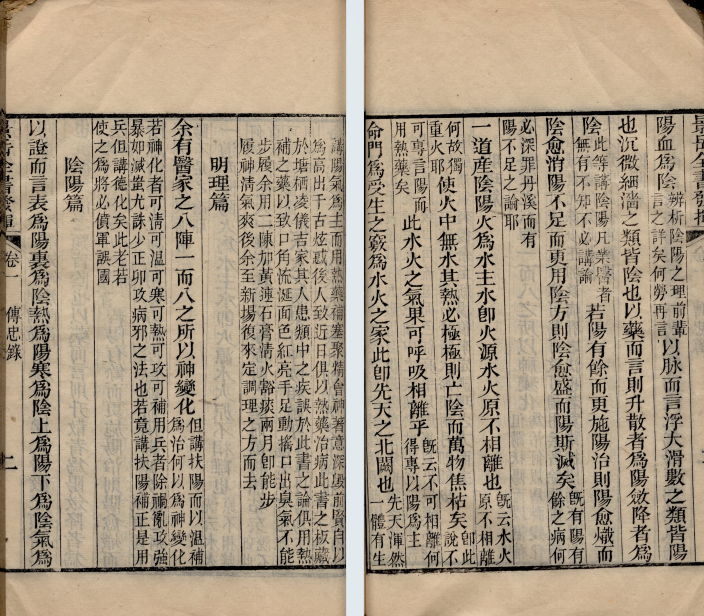 講陽氣爲主而用熱藥補塞聚精會神著意深處前賢自以
爲高出千古炫惑後人致近日俱以熱藥治病此書之板藏
於塘栖凌儀吉家其人患類中之疾誤於此書之論俱用熱
補之藥以致口角流涎面色紅亮手足動搖口出臭氣不能
步履余用二陳加黃連石膏清火豁痰兩月卽能步
履神清氣爽後余至新場復來定調理之方而去
明理篇
余有醫家之八陣一而八之所以神變化
但講扶陽而以溫補
爲治何以爲神變化
若神化者可清可溫可寒可熱可攻可補用兵者除禍亂攻強
暴如滅蚩尤誅少正卯攻病邪之法也若竟講扶陽補正是用
兵但講德化矣此老若
使之爲將必僨軍誤國
陰陽篇
以證而言表爲陽裏爲陰熱爲陽寒爲陰上爲陽下爲陰氣爲
景岳全書發揮 卷一 傳忠錄 二
景岳全書發揮
陽血爲陰
辨析陰陽之理前輩
言之詳矣何勞再言
以脉而言浮大滑數之類皆陽
也沉微細濇之類皆陰也以藥而言則升散者爲陽斂降者爲
陰
此等講陰陽凡業醫者
無有不知不必講論
若陽有餘而更施陽治則陽愈熾而
陰愈消陽不足而更用陰方則陰愈盛而陽斯滅矣
旣有陽有
餘之病何
必深罪丹溪而有
陽不足之論耶
一道產陰陽火爲水主水卽火源水火原不相離也
旣云水火
原不相離
何故獨
重火耶
使火中無水其熱必極極則亡陰而萬物焦枯矣
卽此
說不
可專言陽而
用熱藥矣
此水火之氣果可呼吸相離乎
旣云不可相離何
得專以陽爲主
命門爲受生之竅爲水火之家此卽先天之北闕也
先天渾然
一體有生